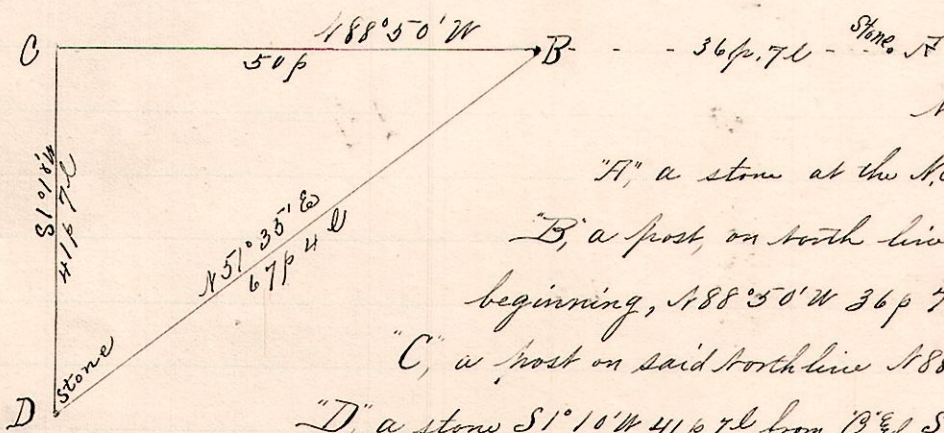 N88°50'W
C 50p B - - - 36p.7l - - Stone. A
S1°18'W
41p 7l
N51°35'E
67p 4l
"A", a stone at the N.
"B", a post, on north line
beginning, N88°50'W 36p 7
"C", a post on said north line N88
D stone
"D" a stone S1°10'W 41p 7l from